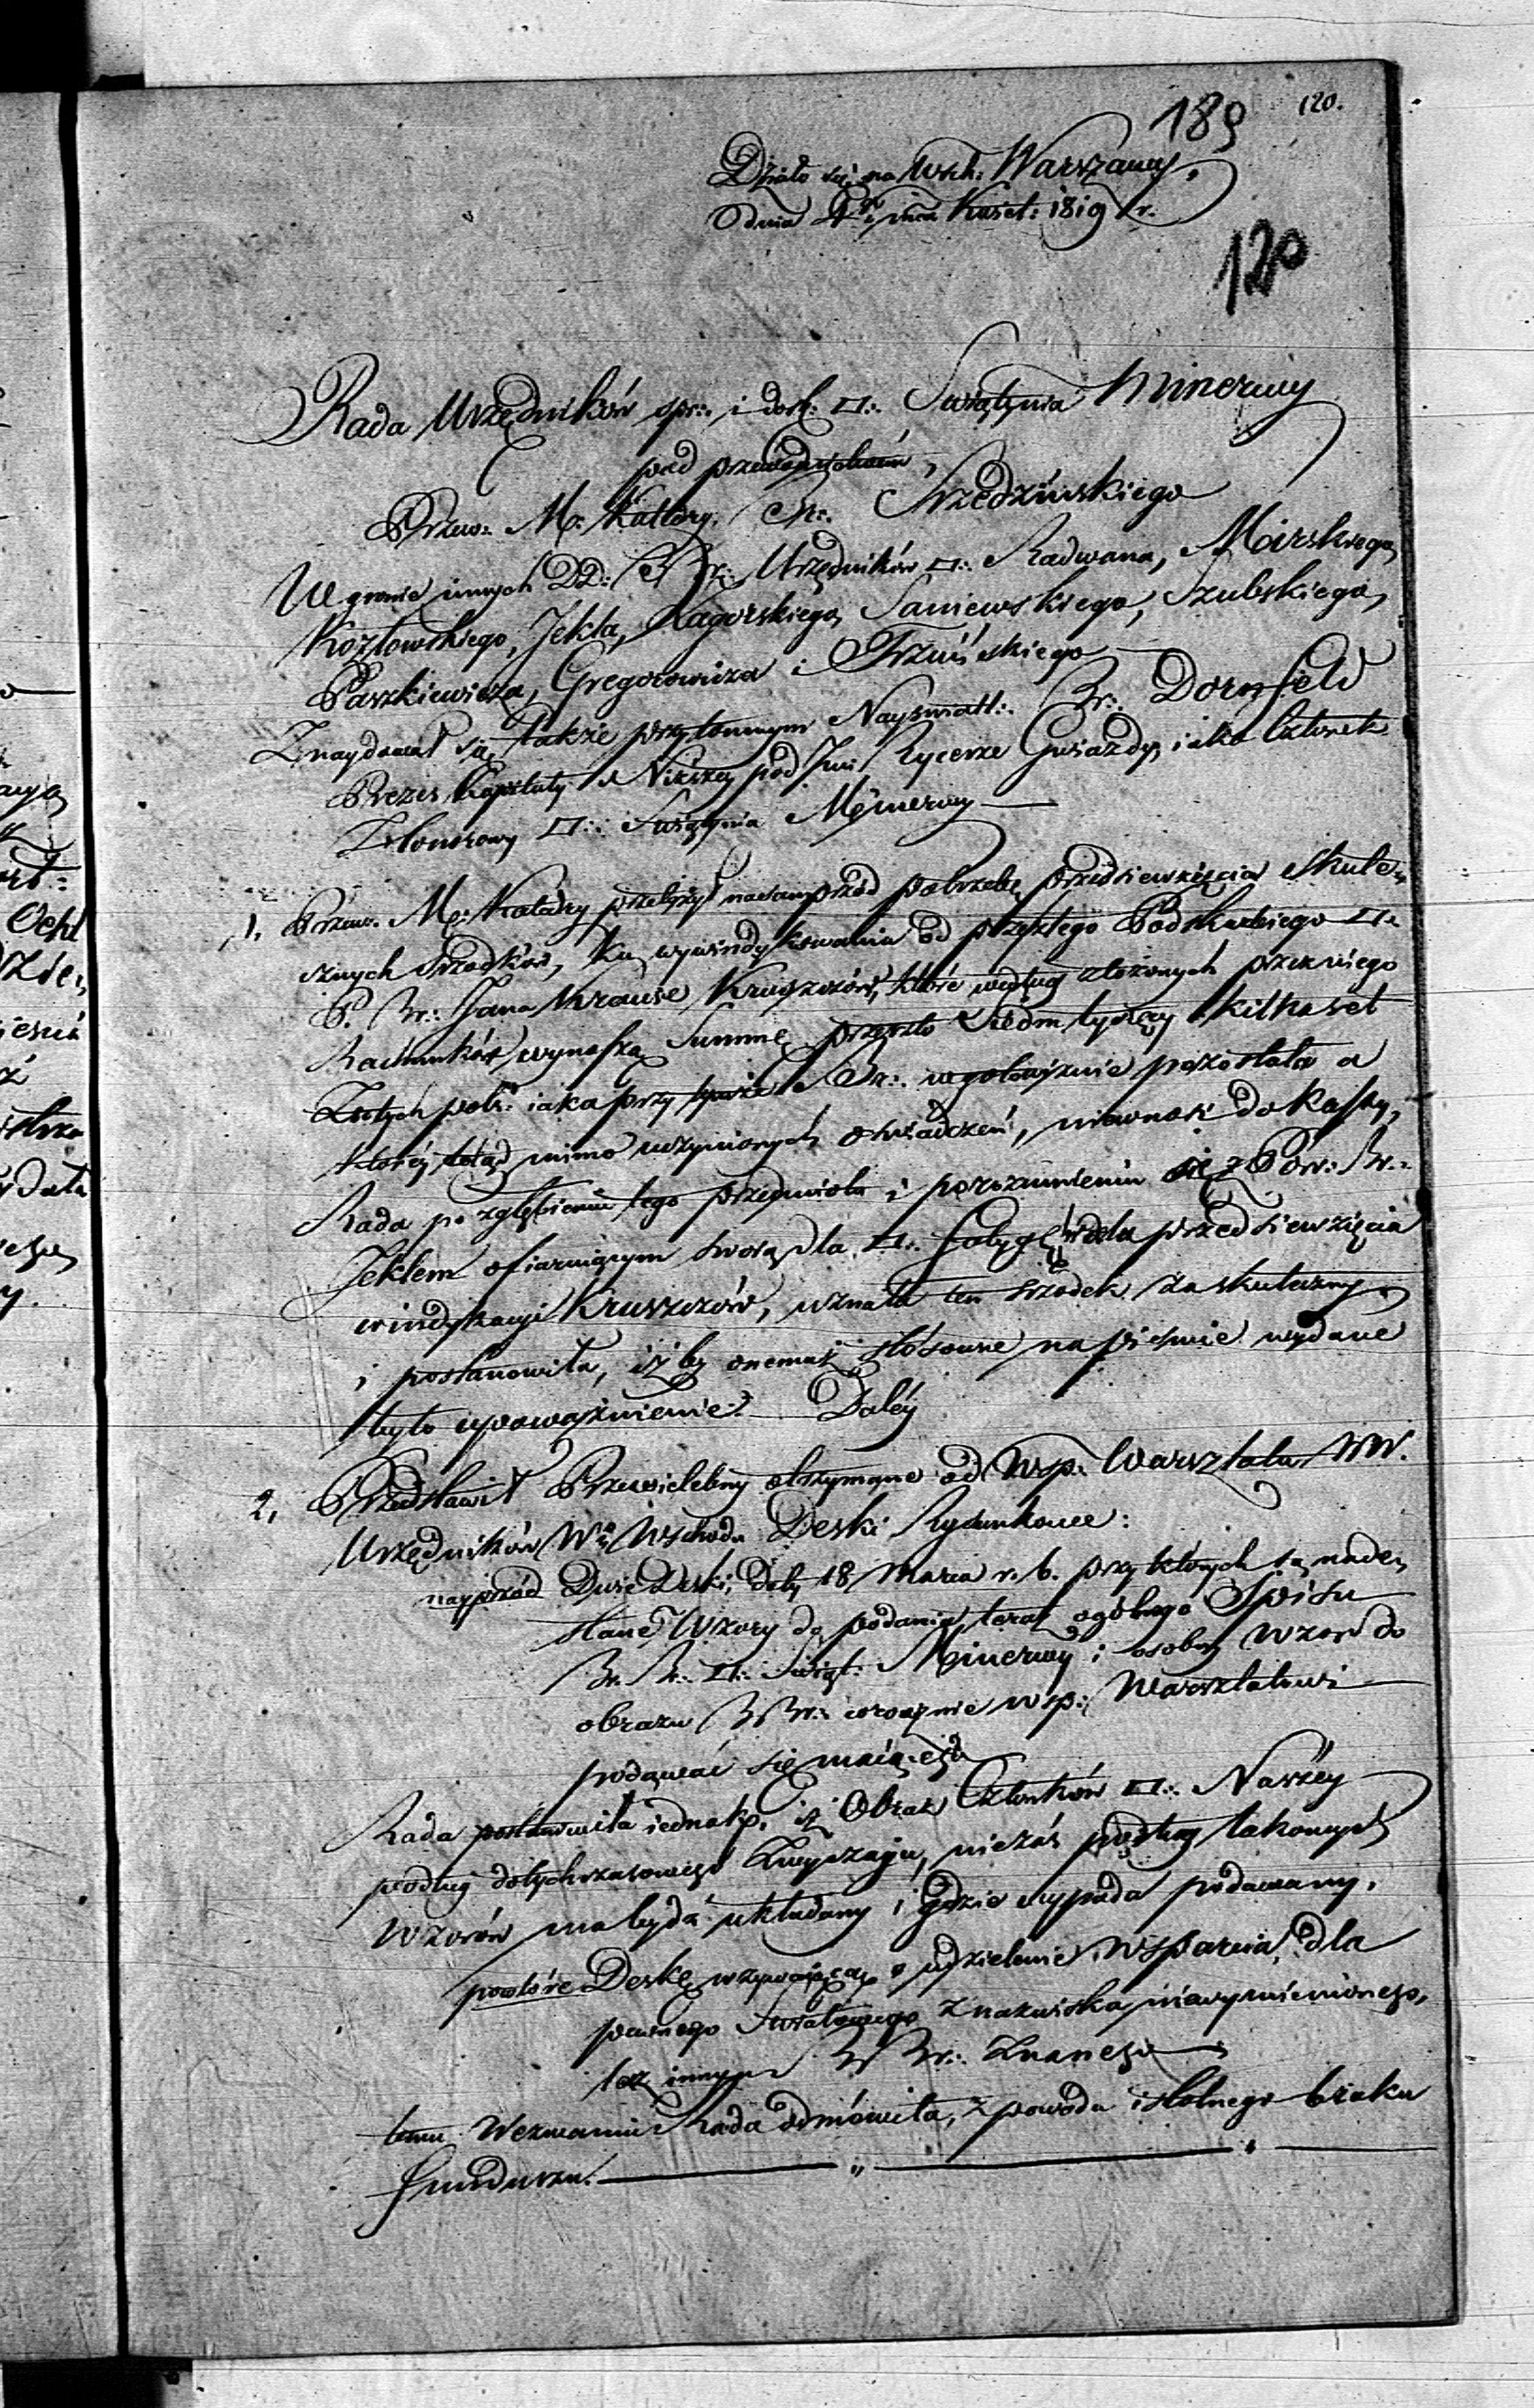 189 120.
Działo się na Wsch: Warszawy,
dnia 4go mca Kwiet: 1819 r.
120
Rada Urzędników spr:. i dosk: □:. Świątynia Minerwy
pod przewodnictwem
Przew: M: Kattdry: Br:. Srzedzińskiego
W gronie innych DD: Br:. Urzędników □:. Radwana, Mirskiego,
Kozłowskiego, Jekla, Zagorskiego, Saniewskiego, Szubskiego,
Paszkiewicza, Gregorowicza i
Znaydował się także przytomnym Nayświatl:. Br:. Dornfeld
Prezes Kapituły Niższey pod Im: Rycerze Gwiazdy, iako Członek
Honorowy □:. Świątynia Minerwy —
1. Przew. M: Katedry przełożył nasamprzód potrzebę przedsiewzięcia skute-
cznych srzodków, ku wywindykowania od przeszłego Podskarbiego □:.
P. Br:. Jana Krause Kruszczów, które według złożonych przez niego
Rachunków, wynoszą Summę przeszło siedm tysięcy kilkaset
Złotych pols: iaka przy tymże Br:. w gotowiznie pozostała a
którey, dotąd mimo uczynionych oświadczeń, niewnosi do Kassy,
Rada po zgłębieniu tego przedmiotu i porozumieniu się z Pow: Br:.
Jeklem ofiaruiącym swoią dla □:. przedsiewzięcia
windykacyi Kruszczów, uznała ten srzodek za skuteczny,
i postanowiła, iżby onemuż stósowne na piśmie wydane
było upoważnienie. — Daléy
2. Przedstawił Przewielebny otrzymane od Wsp: Warsztatu WW.
Urzędników Wgo Wschodu Deski Rysunkowe:
nayprzód Dwie Deski, daty 18 Marca r. b. przy których są nade-
słane Wzory do podania teraz ogólnego Spisu
Br. Br:. □:. Świąt: Minerwy i osobny wzor do
obrazu B Br:. corocznie Wsp: Warsztatowi —
podawać się maiącego
Rada postanowiła iednakż, iż Obraz Członków □:. Naszéy
podług dotychczasowego zwyczaju, nie zaś podług takowych
wzorów ma bydź układany i gdzie wypada podawany.
powtóre Deskę wzywaiącą o udzielenie wsparcia, dla
pewnego Światowego z nazwiska niewymienionego,
lecz innym B Br:. Znanego —
temu Wezwaniu Rada odmówiła, z powodu istotnego braku
funduszu. — „ — " —